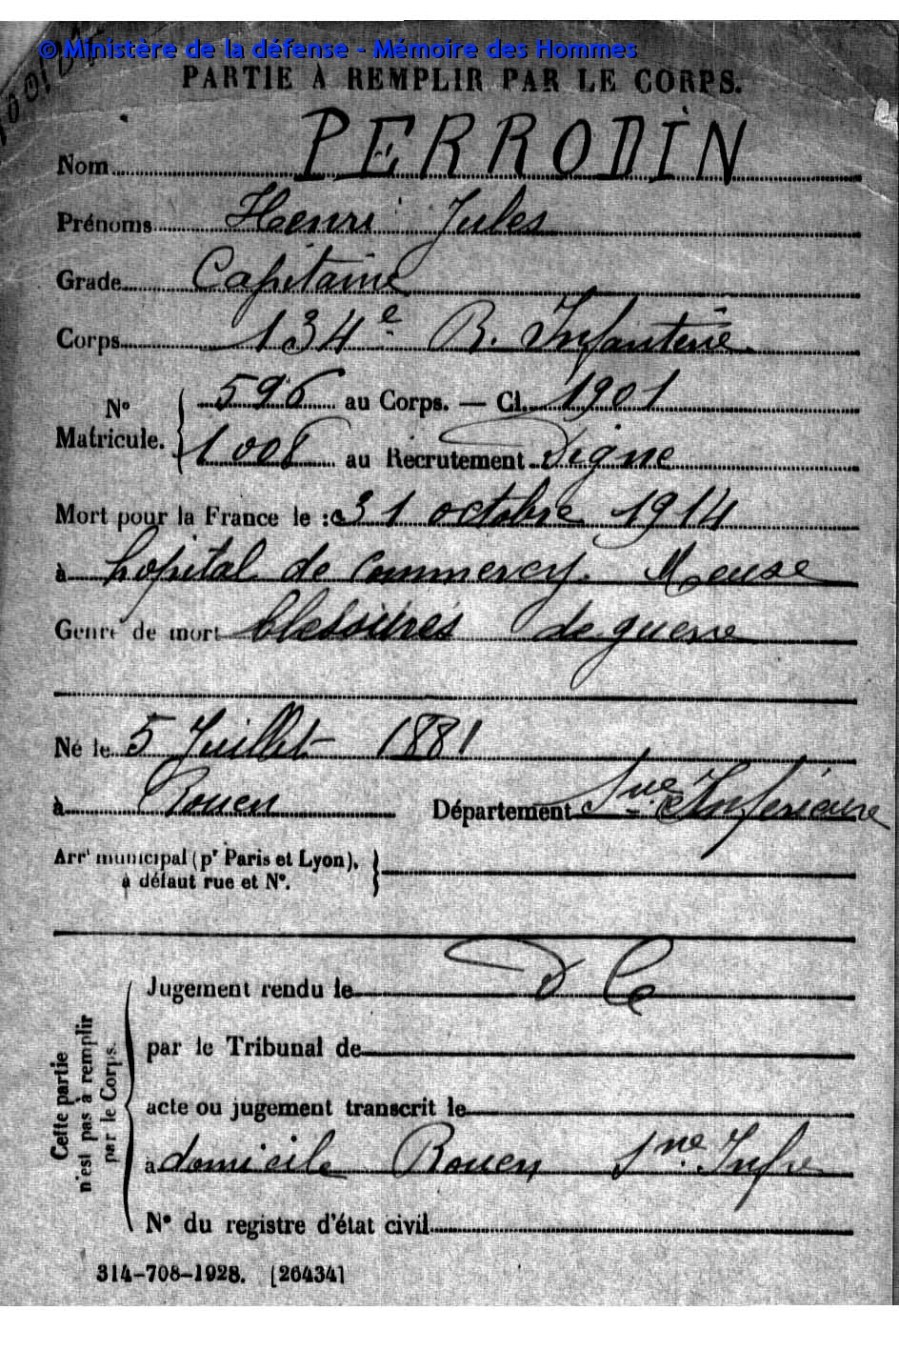 © Ministère de la défense - Mémoire des Hommes
PARTIE À REMPLIR PAR LE CORPS.
Nom PERRODIN
Prénoms Henri Jules
Grade Capitaine
Corps 134e R. Infanterie.
N° Matricule. 596 au Corps. — Cl. 1901
1008 au Recrutement Digne
Mort pour la France le : 31 octobre 1914
à hopital de Commercy. Meuse
Genre de mort blessures de guerre
Né le 5 Juillet 1881
à Rouen Département Sne Inferieure
Arrt municipal (pr Paris et Lyon),
à défaut rue et N°.
Cette partie
n'est pas à remplir
par le Corps.
Jugement rendu le
par le Tribunal de
acte ou jugement transcrit le
a domicile Rouen Sne Infre
N° du registre d'état civil
314-708-1928. [26434]